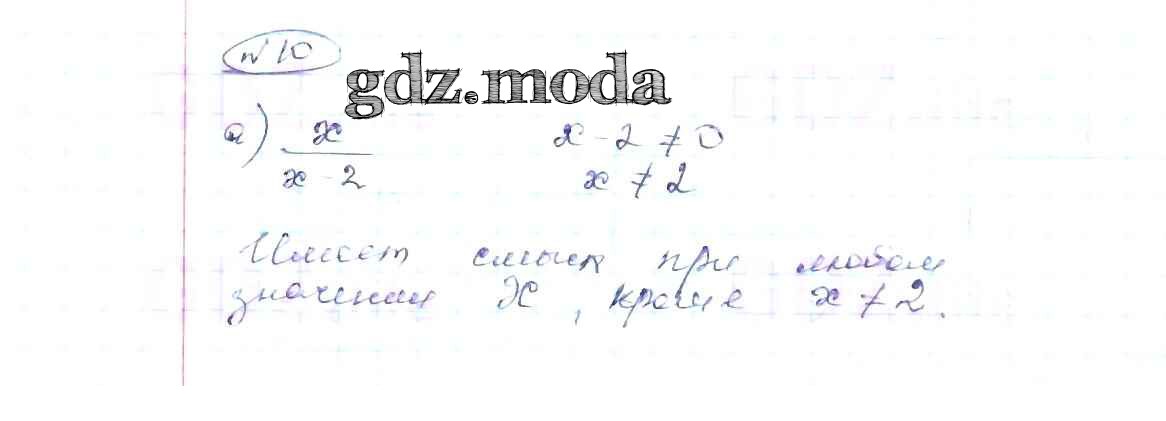 № 10
gdz.moda
а) x / (x - 2)    x - 2 ≠ 0
x ≠ 2
Имеет смысл при любом
значении X, кроме x ≠ 2.